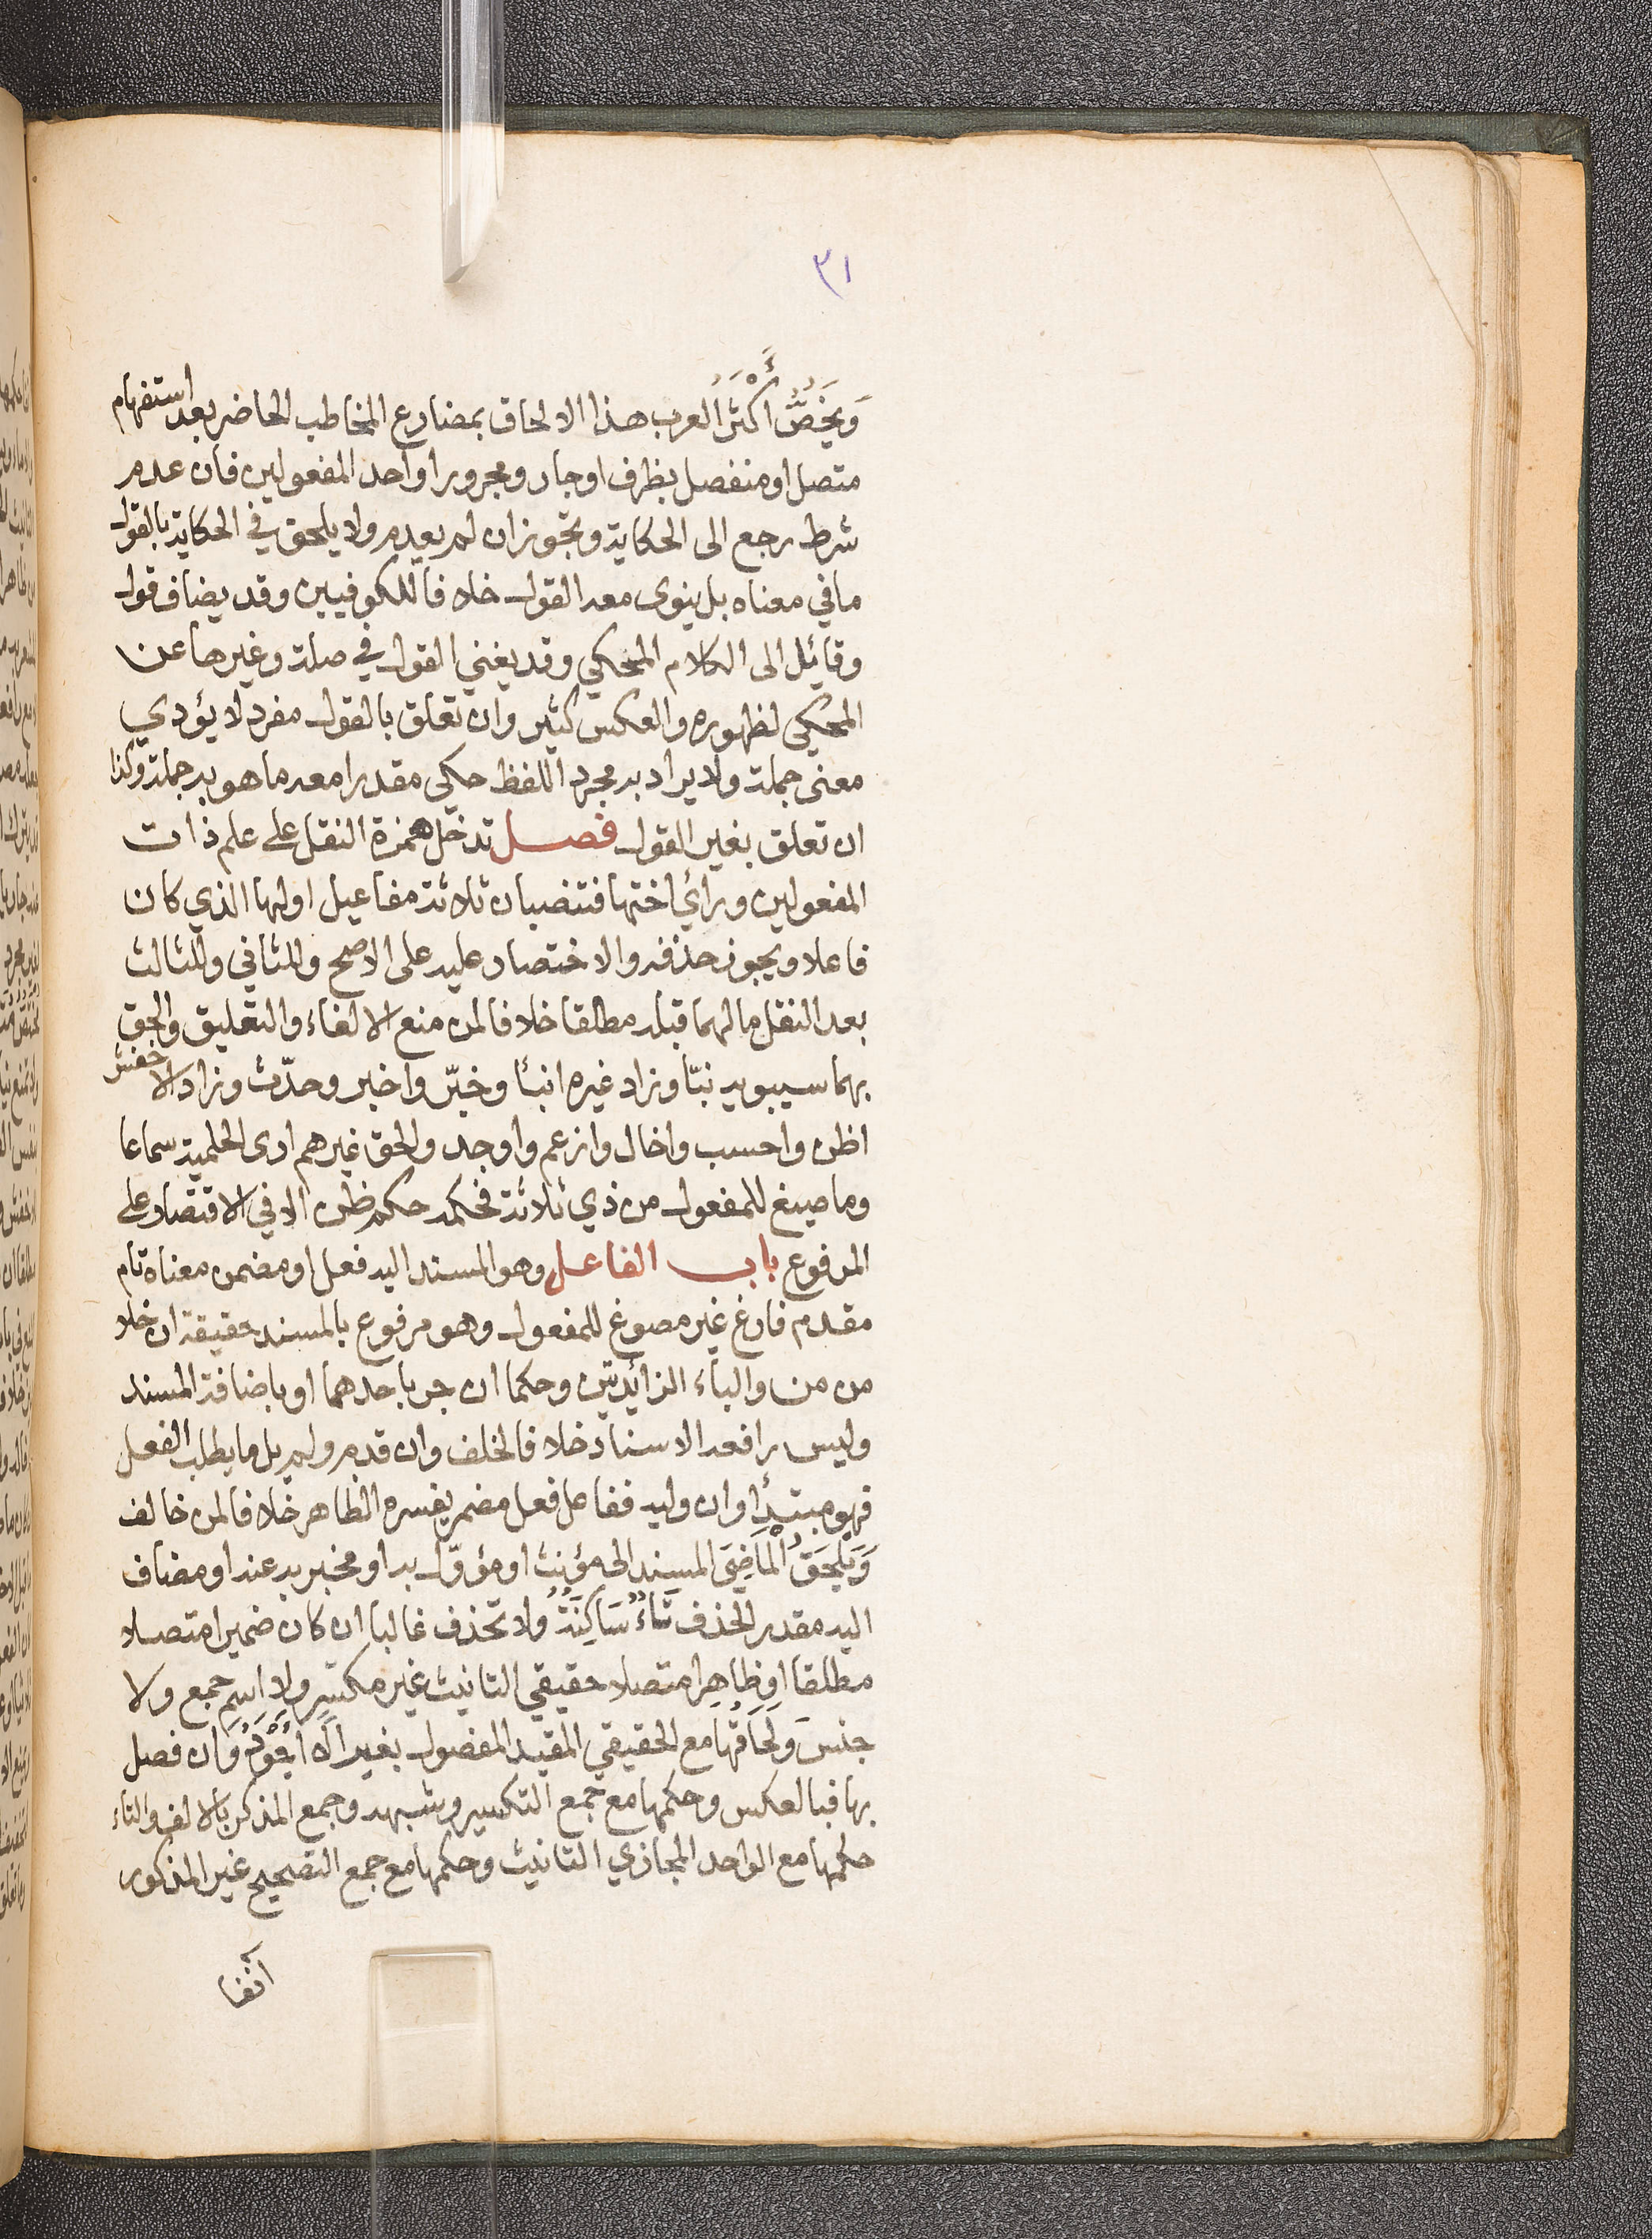 ٣١
وَيَخُصُّ أَكْثَرُ العرب هذا الالحاق بمضارع المخاطب الحاضر بعد استفهام
متصل او منفصل بظرف او جار ومجرور او احد المفعولين فان عدم
شرط رجع الى الحكاية وتجوز ان لم يعدم ولا يلحق في الحكاية بالقول
ما في معناه بل ينوى معه القول خلافا للكوفيين وقد يضاف قول
وقائل الى الكلام المحكي وقد يغني القول في صلة وغيرها عن
المحكي لظهوره والعكس كثير وان تعلق بالقول مفرد لا يؤدي
معنى جملة ولا يراد به مجرد اللفظ حكى مقدرا معه ما هو به جملة وكذا
ان تعلق بغير القول فصل تدخل همزة النقل على علم ذات
المفعولين ورأي اختها فتنصبان ثلاثة مفاعيل اولها الذي كان
فاعلا ويجوز حذفه والاختصار عليه على الاصح وللثاني وللثالث
بعد النقل ما لهما قبله مطلقا خلافا لمن منع الالغاء والتعليق والحق
بهما سيبويه نبّا وزاد غيره انبأ وخبّر واخبر وحدّث وزاد الاخفش
اظن واحسب واخال وازعم واوجد والحق غيرهم ارى الحلمية سماعا
وما صيغ للمفعول من ذي ثلاثة فحكمه حكم ظن الا في الاقتصار على
المرفوع باب الفاعل وهو المسند اليه فعل او مضمن معناه تام
مقدم فارغ غير مصوغ للمفعول وهو مرفوع بالمسند حقيقة ان خلا
من من والباء الزائدتين وحكما ان جر باحدهما او باضافة المسند
وليس رافعه الاسناد خلافا لخلف وان قدم ولم يل ما يطلب الفعل
فهو مبتدأ وان وليه ففاعل فعل مضمر يفسره الظاهر خلافا لمن خالف
وَيَلْحَقُ الْمَاضِىَ المسند الى مؤنث او مؤوّل به او مخبر به عنه او مضاف
اليه مقدر الحذف تَاءٌ سَاكِنَةٌ ولا تحذف غالبا ان كان ضميرا متصلا
مطلقا او ظاهرا متصلا حقيقي التانيث غير مكسر ولا اسم جمع ولا
جنس وَلَحَاقُها مع الحقيقي المقيد المفصول بغير الا أَجْوَدُ وان فصل
بها فبالعكس وحكمها مع جمع التكسير وشبهه وجمع المذكر بالالف والتاء
حكمها مع الواحد المجازي التانيث وحكمها مع جمع التصحيح غير المذكور
آنفا